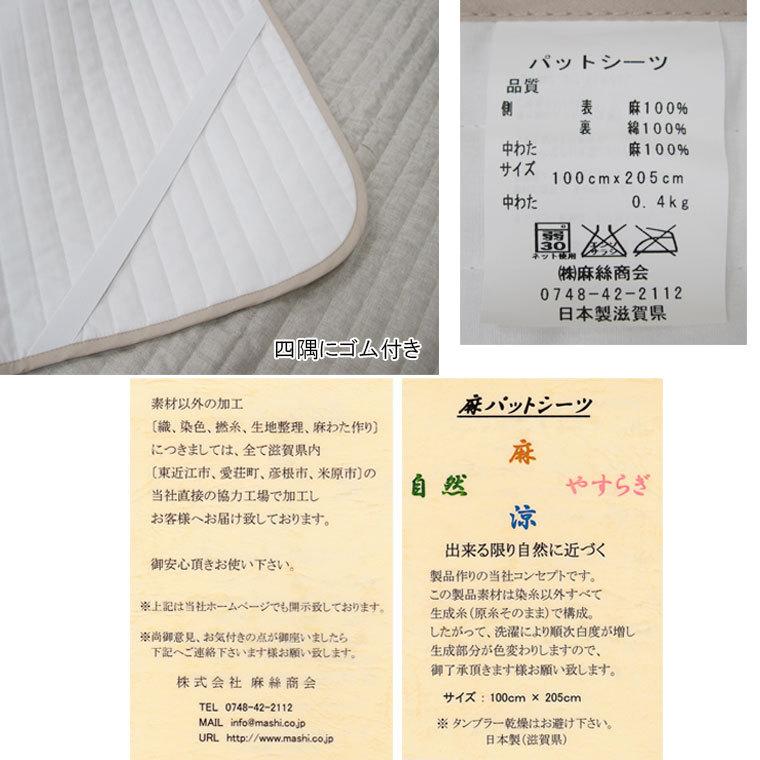 四隅にゴム付き
パットシーツ
品質
側 表 麻100%
裏 綿100%
中わた 麻100%
サイズ 100cmx205cm
中わた 0.4kg
弱
30
ネット使用
エンソ
サラシ
㈱麻絲商会
0748-42-2112
日本製滋賀県
素材以外の加工
〔織、染色、撚糸、生地整理、麻わた作り〕
につきましては、全て滋賀県内
〔東近江市、愛荘町、彦根市、米原市〕の
当社直接の協力工場で加工し
お客様へお届け致しております。
御安心頂きお使い下さい。
※上記は当社ホームページでも開示致しております。
※尚御意見、お気付きの点が御座いましたら
下記へご連絡下さいます様お願い致します。
株式会社 麻絲商会
TEL 0748-42-2112
MAIL info@mashi.co.jp
URL http://www.mashi.co.jp
麻パットシーツ
麻
自然 やすらぎ
涼
出来る限り自然に近づく
製品作りの当社コンセプトです。
この製品素材は染糸以外すべて
生成糸(原糸そのまま)で構成。
したがって、洗濯により順次白度が増し
生成部分が色変わりしますので、
御了承頂きます様お願い致します。
サイズ：100cm × 205cm
※ タンブラー乾燥はお避け下さい。
日本製(滋賀県)